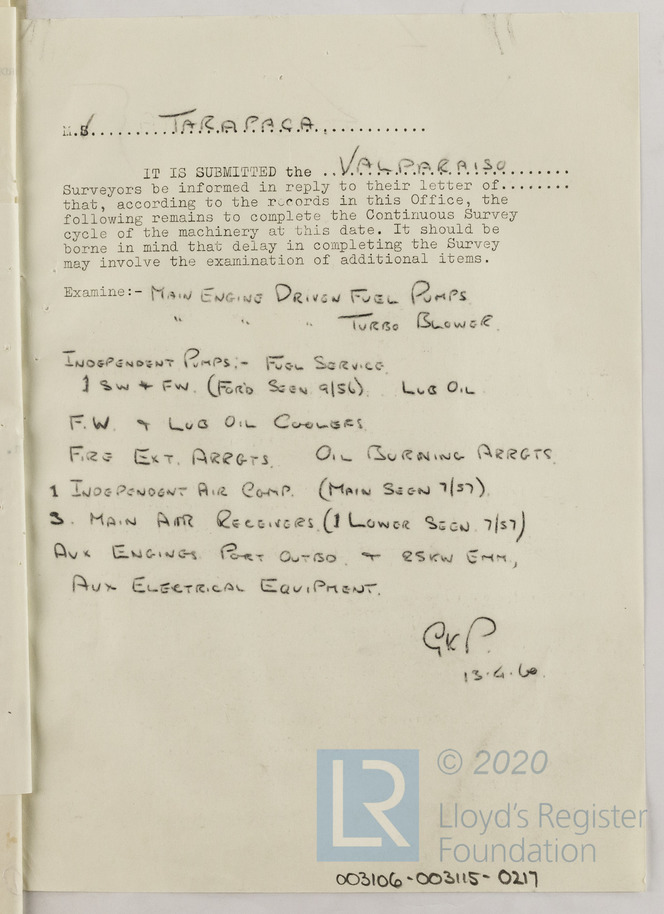 M.S. TARAPACA
IT IS SUBMITTED the ..VALPARAISO..........
Surveyors be informed in reply to their letter of........
that, according to the records in this Office, the
following remains to complete the Continuous Survey
cycle of the machinery at this date. It should be
borne in mind that delay in completing the Survey
may involve the examination of additional items.
Examine:- MAIN ENGINE DRIVEN FUEL PUMPS
" " " TURBO BLOWER.
INDEPENDENT PUMPS:- FUEL SERVICE
1 SW + FW. (FOR'D SEEN 9/56) LUB OIL
F.W. + LUB OIL COOLERS
FIRE EXT. ARRGTS. OIL BURNING ARRGTS.
1 INDEPENDENT AIR COMP. (MAIN SEEN 7/57).
3. MAIN AIR RECEIVERS. (1 LOWER SEEN 7/57)
AUX ENGINES PORT OUTBD. + 25KW EMM.,
AUX ELECTRICAL EQUIPMENT.
GKP.
13.4.60.
LR
© 2020
Lloyd's Register
Foundation
003106-003115-0217